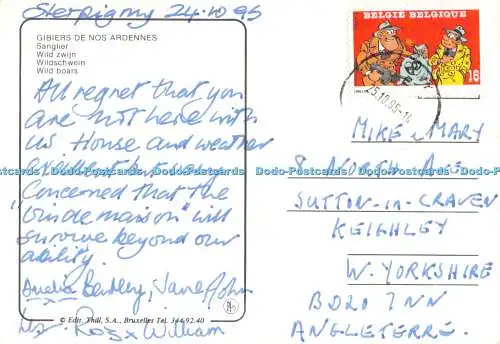 Sterpigny 24.10 95
GIBIERS DE NOS ARDENNES
Sanglier
Wild zwijn
Wildschwein
Wild boars
All regret that you
are not here with
us. House and weather
excellent but say
Concerned that the
"vin de maison" will
survive beyond our
ability.
Bentley, Jane John
Les. Ros x William
© Edit. Thill, S.A., Bruxelles Tel. 344.92.40
BELGIË BELGIQUE
16
25.10.95-14
MIKE & MARY
8 NORTH AVE
SUTTON-IN-CRAVEN
KEIGHLEY
W. YORKSHIRE
BD20 7NN
ANGLETERRE.
Dodo-Postcards Dodo-Postcards Dodo-Postcards Dodo-Postcards Dodo-Postcards Dodo-Postcards